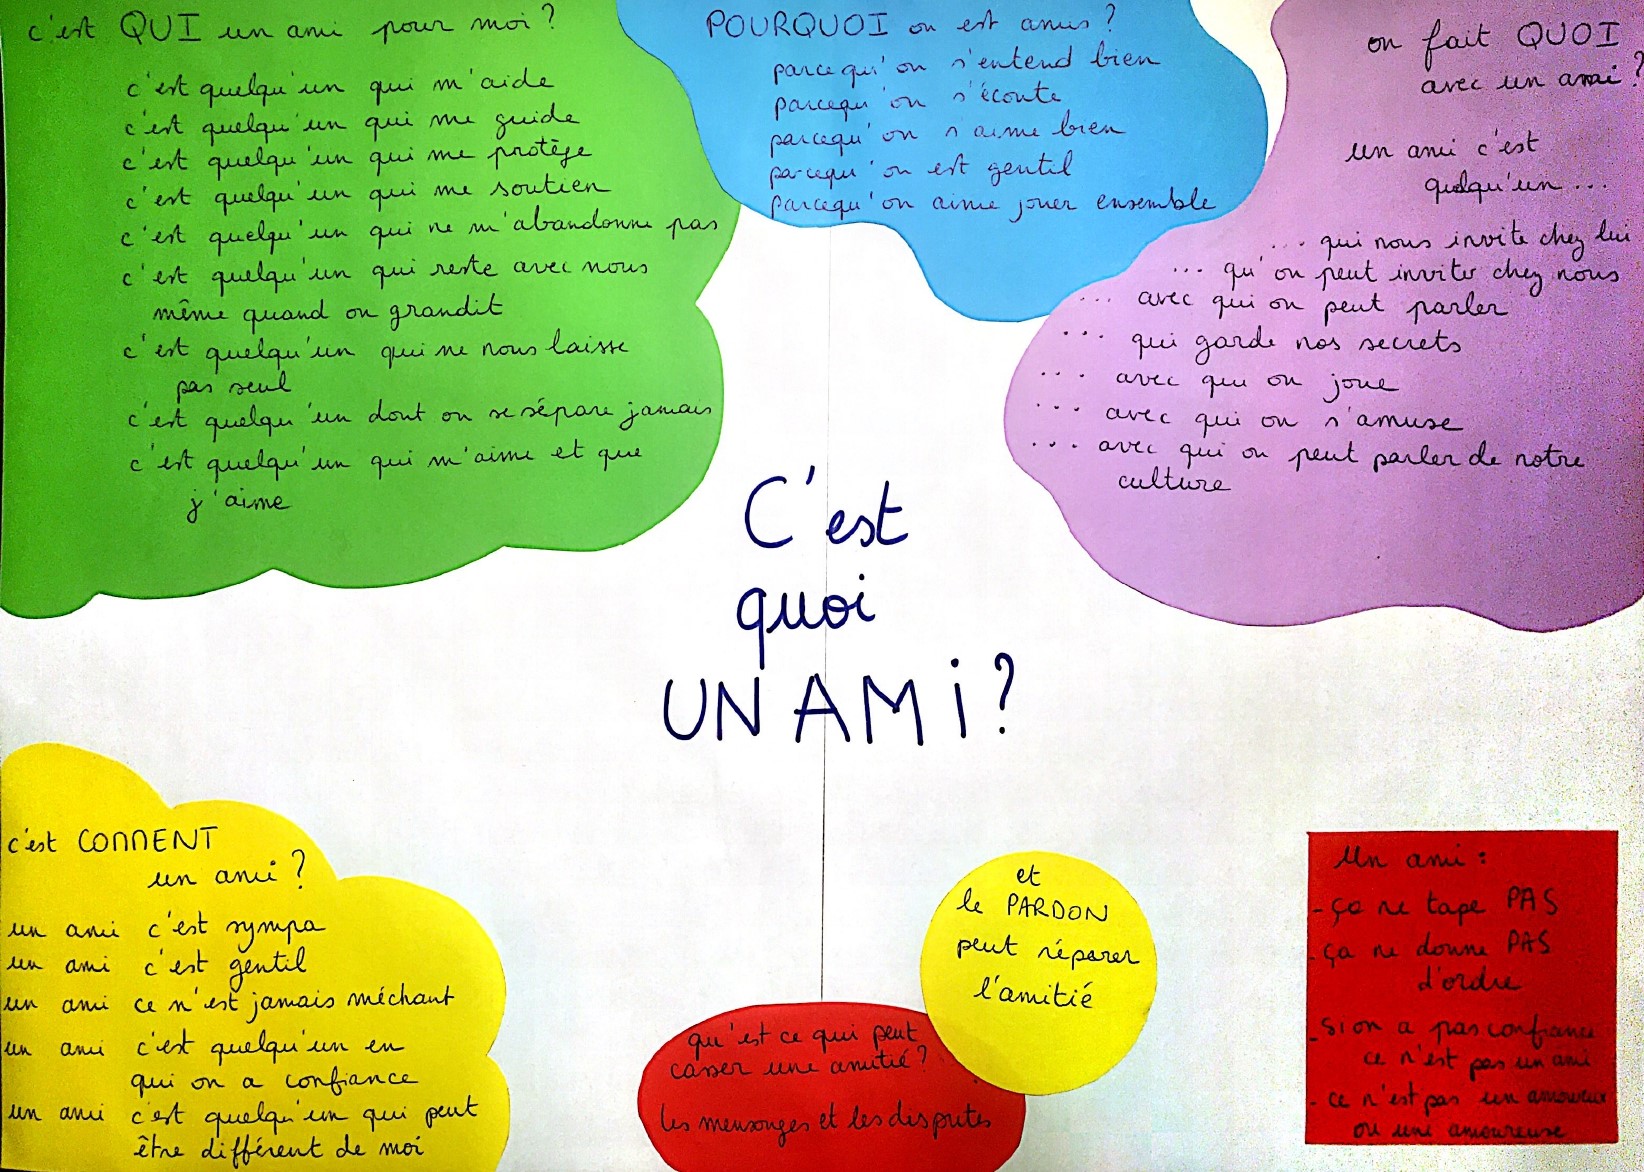 c'est QUI un ami pour moi ?
c'est quelqu'un qui m'aide
c'est quelqu'un qui me guide
c'est quelqu'un qui me protège
c'est quelqu'un qui me soutien
c'est quelqu'un qui ne m'abandonne pas
c'est quelqu'un qui reste avec nous
même quand on grandit
c'est quelqu'un qui ne nous laisse
pas seul
c'est quelqu'un dont on se sépare jamais
c'est quelqu'un qui m'aime et que
j'aime
POURQUOI on est amis ?
parcequ'on s'entend bien
parcequ'on s'écoute
parcequ'on s'aime bien
parcequ'on est gentil
parcequ'on aime jouer ensemble
on fait QUOI
avec un ami ?
un ami c'est
quelqu'un ...
... qui nous invite chez lui
... qu'on peut inviter chez nous
... avec qui on peut parler
... qui garde nos secrets
... avec qui on joue
... avec qui on s'amuse
... avec qui on peut parler de notre
culture
C'est
quoi
UN AMi ?
c'est COMMENT
un ami ?
un ami c'est sympa
un ami c'est gentil
un ami ce n'est jamais méchant
un ami c'est quelqu'un en
qui on a confiance
un ami c'est quelqu'un qui peut
être différent de moi
qu'est ce qui peut
casser une amitié ?
les mensonges et les disputes
et
le PARDON
peut réparer
l'amitié
Un ami :
- ça ne tape PAS
- ça ne donne PAS
d'ordre
- si on a pas confiance
ce n'est pas un ami
- ce n'est pas un amoureux
ou une amoureuse